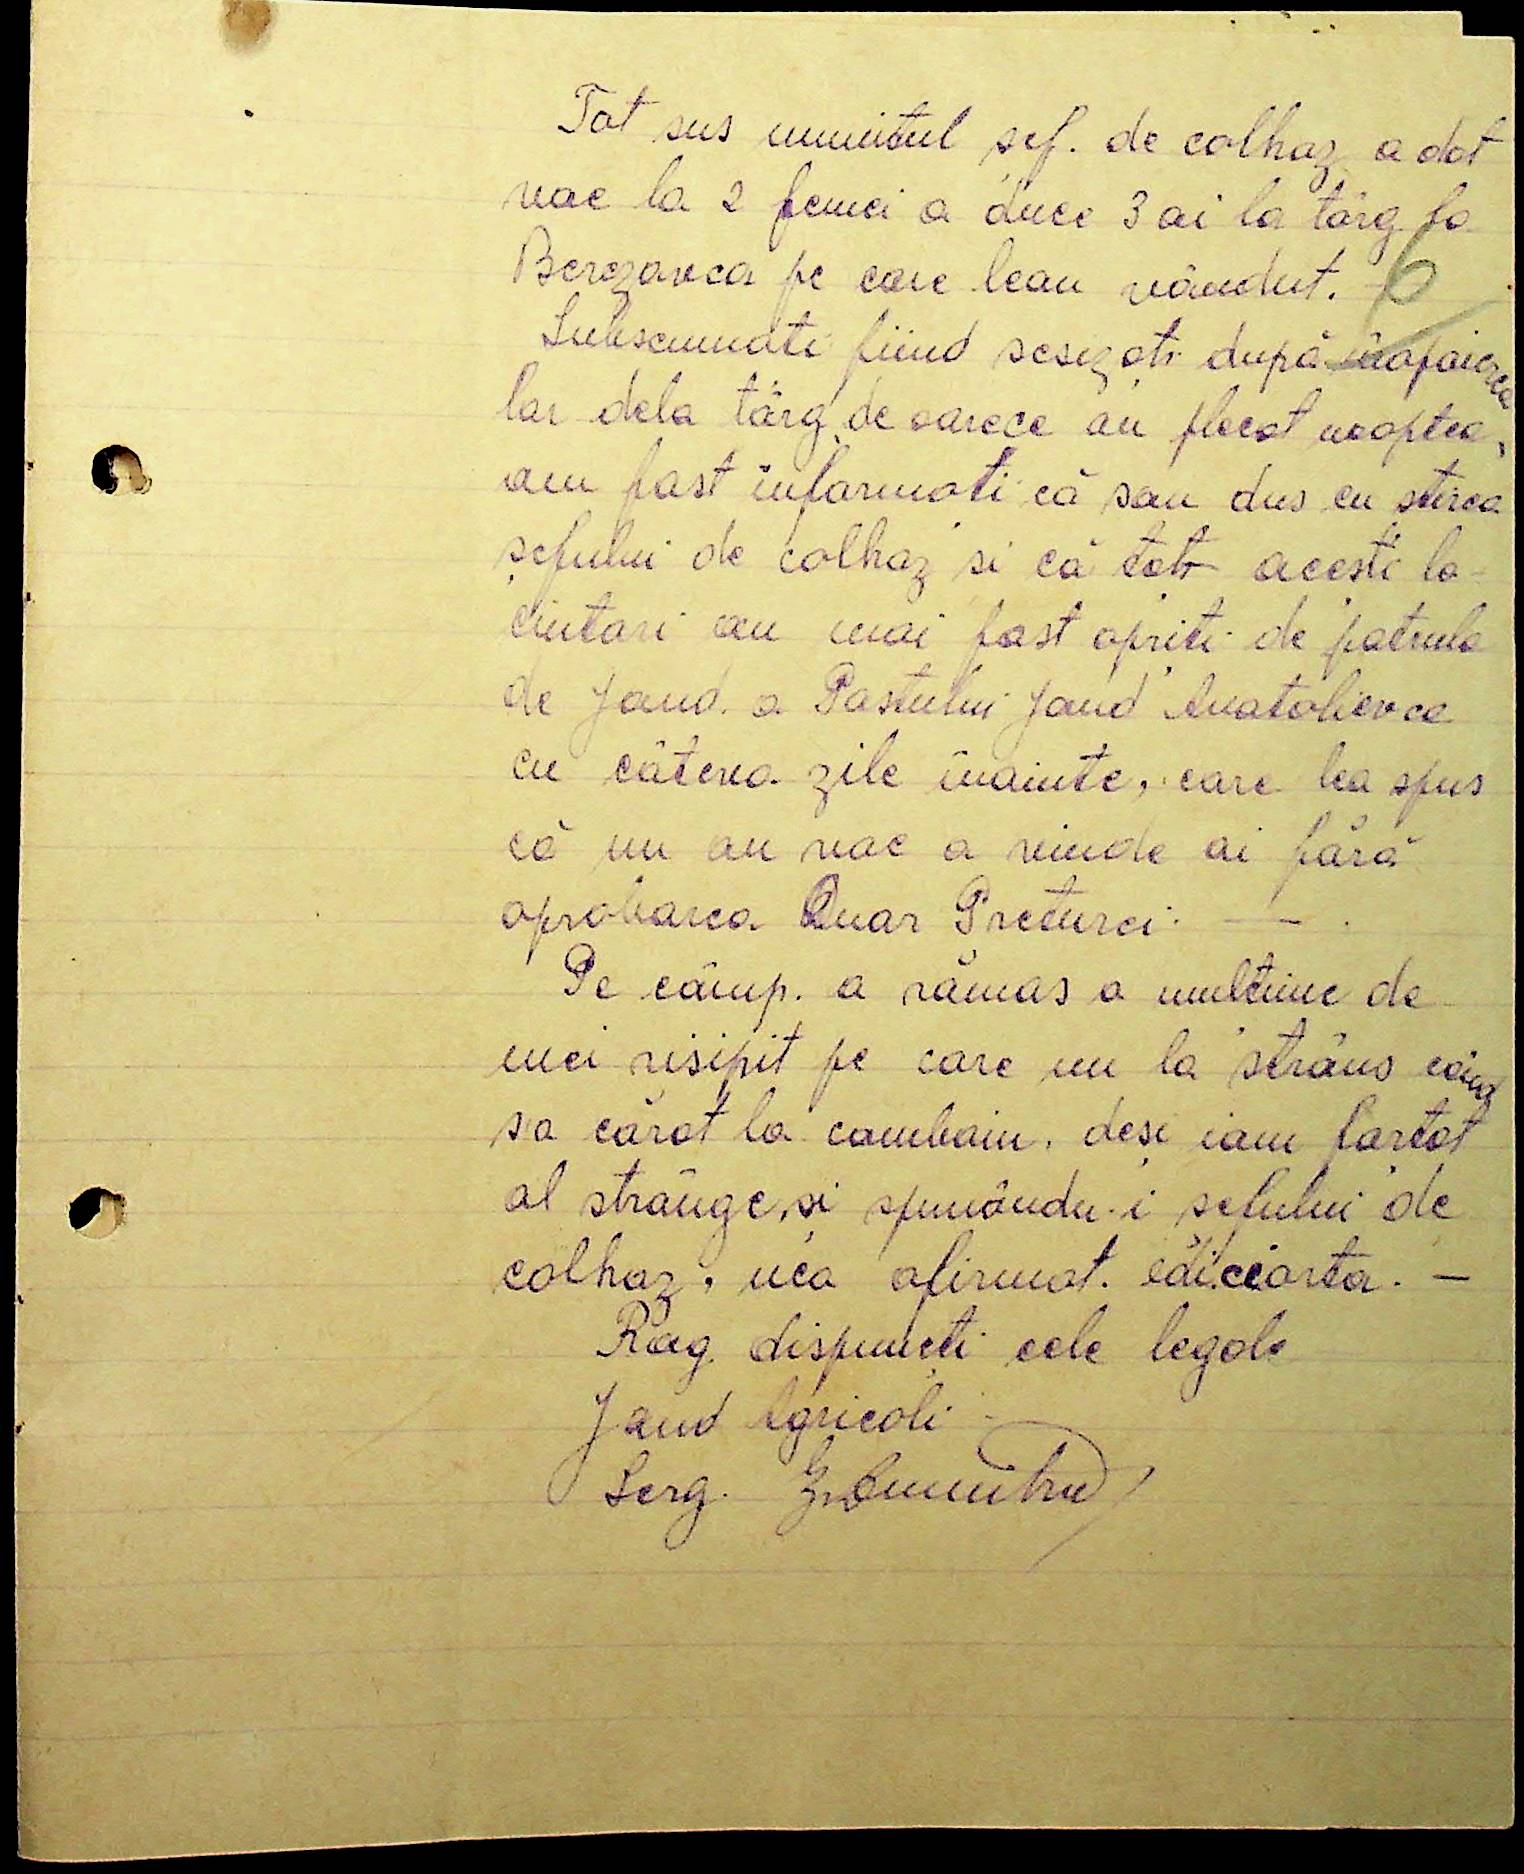 Tot sus numitul șef. de colhoz a dat
voe la 2 femei a duce 3 oi la târg la
Berezavca pe care leau vândut.
6
Subsemnați fiind sesizați după înapoierea
lor dela târg de oarece au plecat noaptea,
am fost informați că sau dus cu știrea
șefului de colhoz și că toți acești lo-
cuitori au mai fost opriți de patrula
de Jand. a Postului Jand Anatolievca
cu câteva zile înainte, care lea spus
că nu au voe a vinde oi fără
aprobarea Onor Preturei. —
Pe câmp. a rămas o mulțime de
mei risipit pe care nu la strâns când
sa cărat la combain. deși iam forțat
al strânge, și spunându-i șefului de
colhoz, nea afirmat.
Rog dispuneți cele legale
Jand Agricoli
Serg. Dumitru